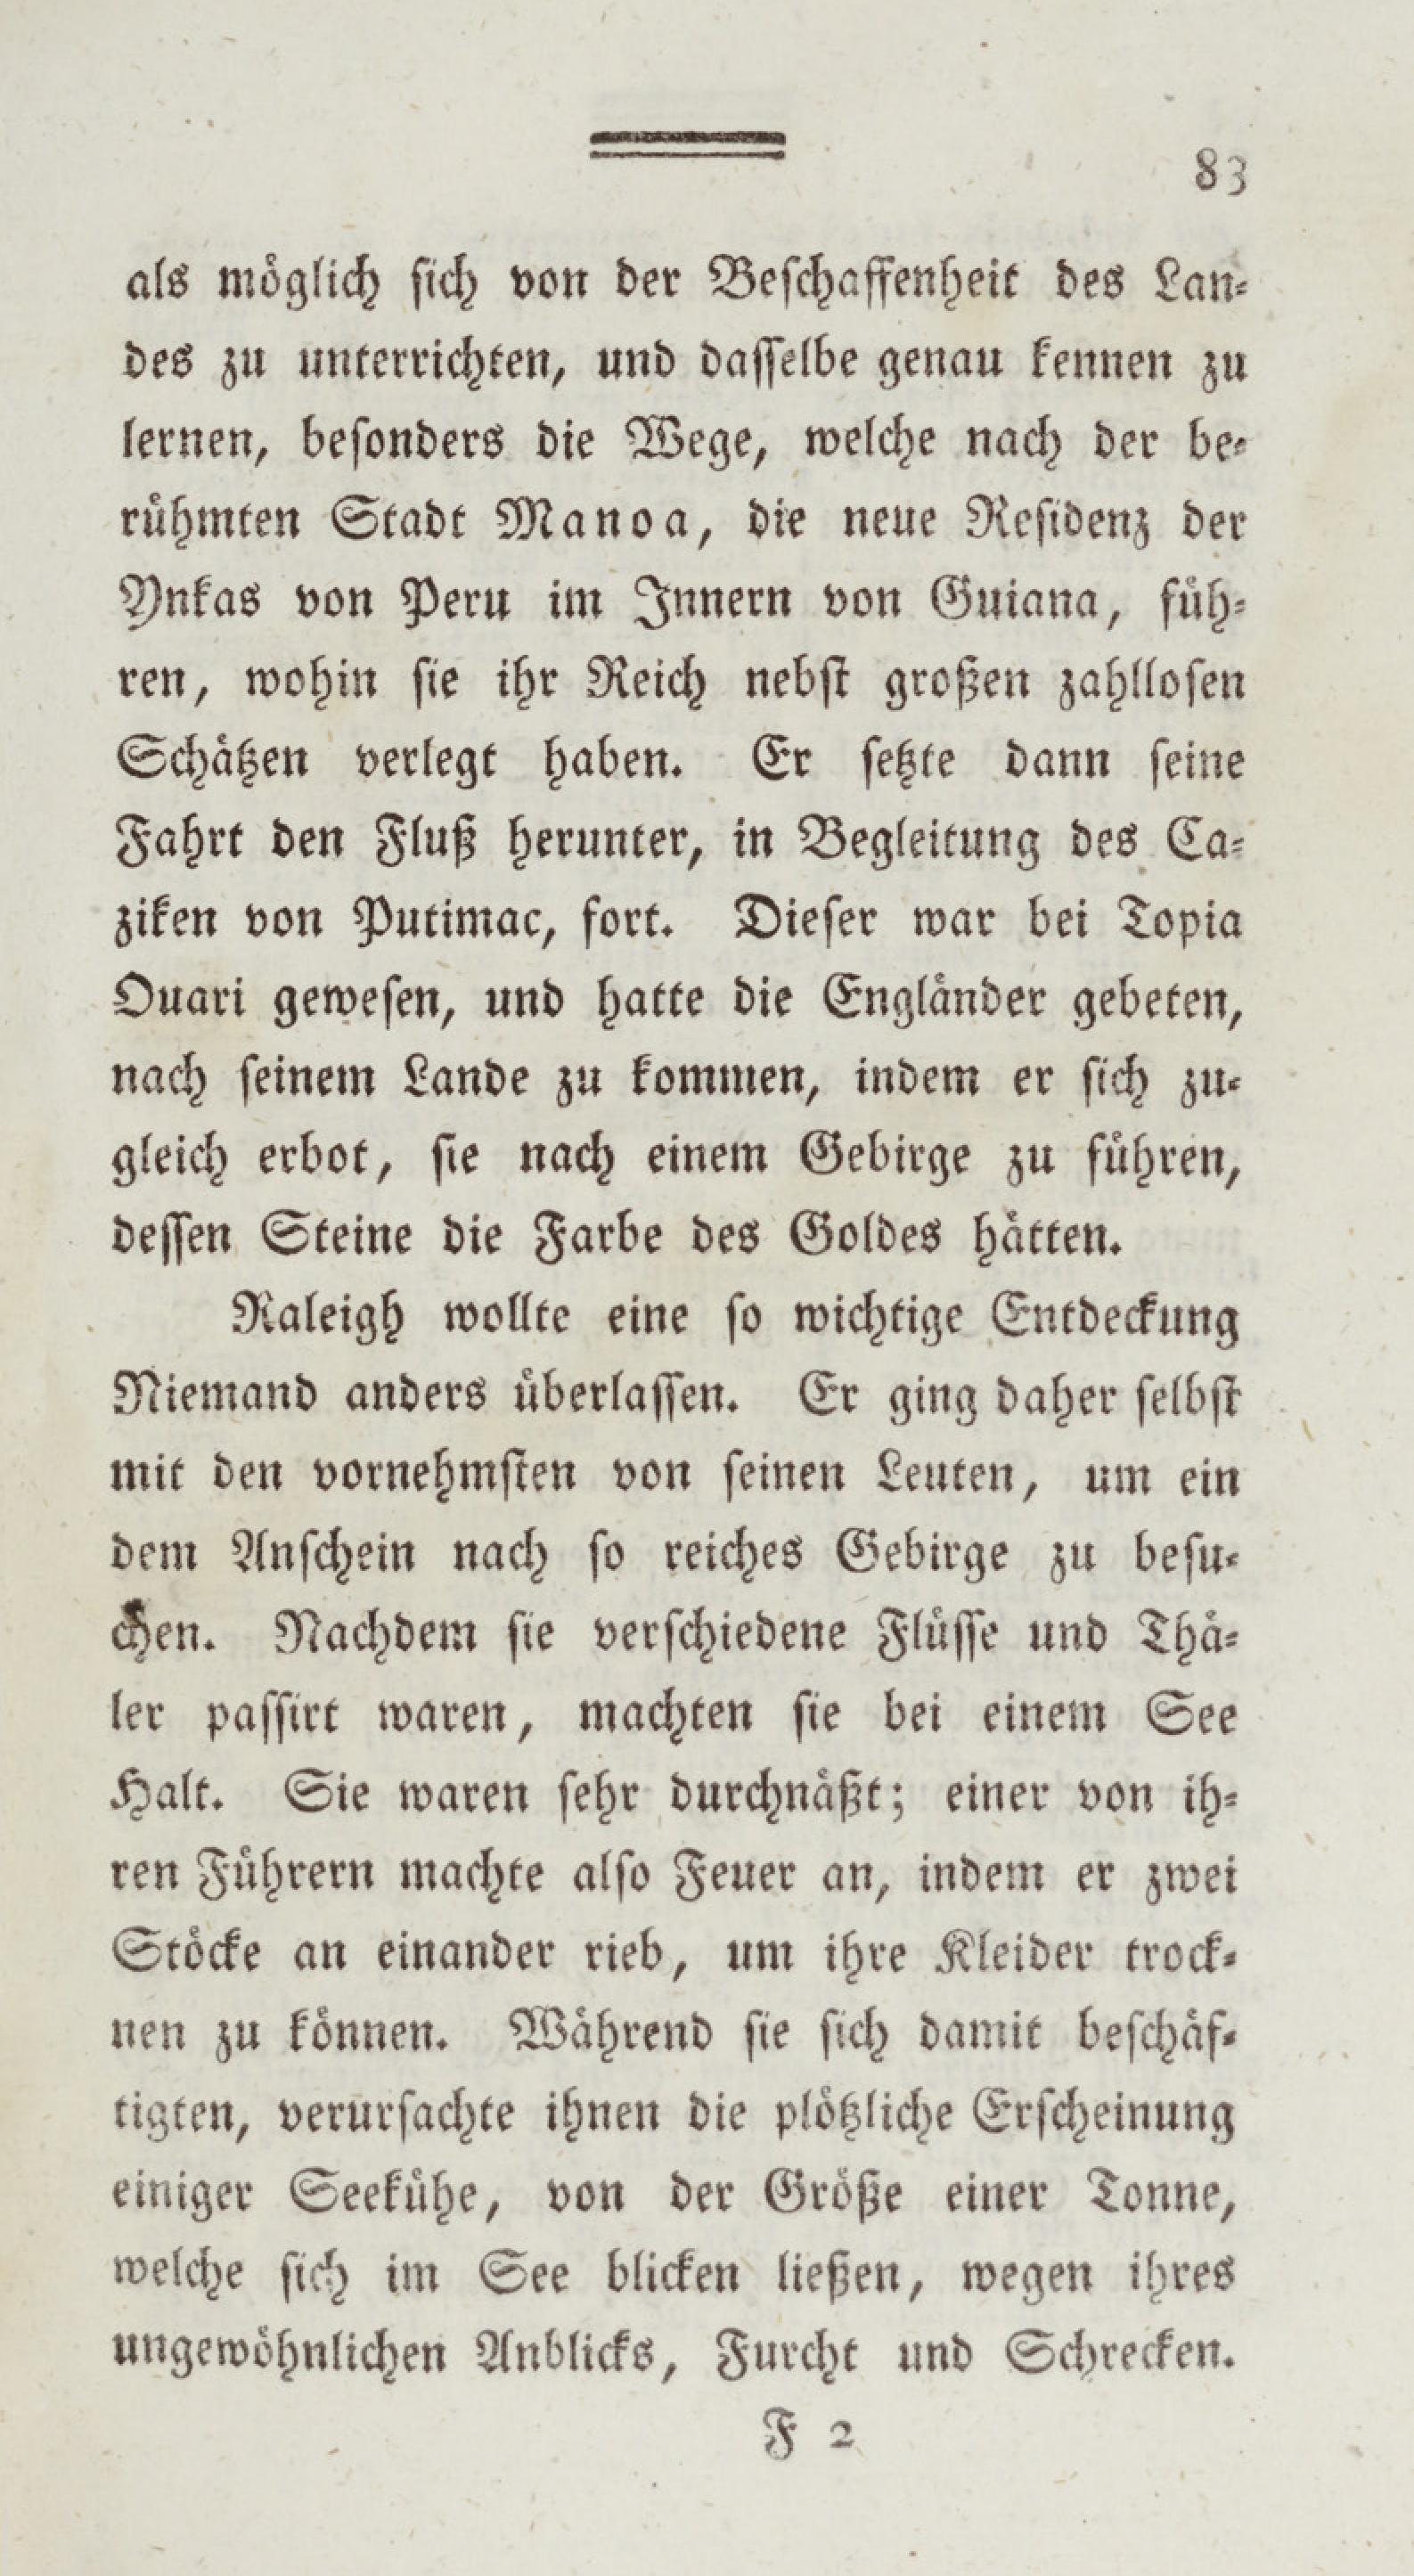 83
als möglich sich von der Beschaffenheit des Lan-
des zu unterrichten, und dasselbe genau kennen zu
lernen, besonders die Wege, welche nach der be-
rühmten Stadt Manoa, die neue Residenz der
Ynkas von Peru im Innern von Guiana, füh-
ren, wohin sie ihr Reich nebst großen zahllosen
Schätzen verlegt haben. Er setzte dann seine
Fahrt den Fluß herunter, in Begleitung des Ca-
ziken von Putimac, fort. Dieser war bei Topia
Ouari gewesen, und hatte die Engländer gebeten,
nach seinem Lande zu kommen, indem er sich zu-
gleich erbot, sie nach einem Gebirge zu führen,
dessen Steine die Farbe des Goldes hätten.
Raleigh wollte eine so wichtige Entdeckung
Niemand anders überlassen. Er ging daher selbst
mit den vornehmsten von seinen Leuten, um ein
dem Anschein nach so reiches Gebirge zu besu-
chen. Nachdem sie verschiedene Flüsse und Thä-
ler passirt waren, machten sie bei einem See
Halt. Sie waren sehr durchnäßt; einer von ih-
ren Führern machte also Feuer an, indem er zwei
Stöcke an einander rieb, um ihre Kleider trock-
nen zu können. Während sie sich damit beschäf-
tigten, verursachte ihnen die plötzliche Erscheinung
einiger Seekühe, von der Größe einer Tonne,
welche sich im See blicken ließen, wegen ihres
ungewöhnlichen Anblicks, Furcht und Schrecken.
F 2